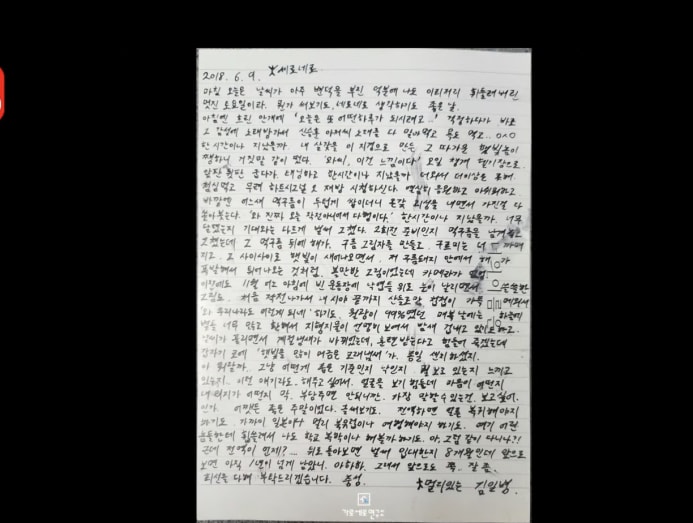 2018. 6. 9. 火세로네로
아침 오늘은 날씨가 아주 변덕을 부린 덕분에 나도 이리저리 휘둘려버린
멋진 토요일이라. 뭔가 써보기도, 네로네로 생각하기도 좋은 날.
아침엔 흐린 안개에 '오늘은 또 어떤하루가 되시려고..' 걱정하다가 바로
그 감성에 노래방가서 신승훈 아저씨 노래를 다 잊어먹고 목도 먹고.. ㅇㅅㅇ
한시간이나 지났을까. 내 살갗을 이 지경으로 만든 그 따가운 햇빛놈이
쨍하니 거짓말 같이 떴다. '와씨, 이건 느낌이다!' 오일 챙겨
앞판 뒷판 굽다가. 한시간이나 지났을까 너무 더이상은
점심먹고 무려 하트시그널 오 재방 시청하신다. 열심히 응원하고 아쉬워하고
바깥엔 어느새 먹구름이 두텁게 쌓이더니 온갖 괴성을 내면서 가진걸 다
쏟아붓는다. '와 진짜 오늘 작전아니어서 다행이다.' 한시간이나 지났을까. 너무
기대와는 다르게 벌써 그쳤다. 2회전 준비인지 먹구름을 남겨
그쳤는데 그 먹구름 뒤에 해가. 구름 그림자를 만들고. 구르미는 더 까매
지고. 그 사이사이로 햇빛이 새어나오면서, 저 구름돼지 안에서 해가
폭발해서 튀어나오는 것처럼. 볼만한 그림이었는데 카메라가 없었
이전에도 11월 여느 아침에 빈 운동장에 낙엽들 위로 눈이 날리면서 쓸쓸한
그림도. 처음 작전나가서 내 시야 끝까지 산들로만 첩첩이 가득 메워져
'와 우리나라도 이렇게 되네' 하기도. 월광이 99%였던 매복날에는 하늘에
별들 너무 많고 환해서 지형지물이 선명히 보여서 밤새 겁내고 있기도하고.
날씨가 풀리면서 계절냄새가 바뀌었는데, 훈련받는다고 힘들어 죽겠는데
갑자기 코에 '햇빛을 많이 머금은 모래냄새'가. 봄임 센치하셨지.
아 뭐랄까.. 그냥 어떤게 옳은 기준인지 낙인지. 뭘 보고 있는지 느끼고
있는지. 이런 얘기라도.. 해주고 싶어서. 얼굴을 보기 힘든데 마음이 어떤지
내 처지가 어떤지 막. 부담주면 안되니깐. 가장 말할수 있는건. 보고싶어
인가. 어쨌든 좋은 주말이었다. 글써보기도. 전역하면 얼른 복귀해야지
하기도. 가까이 일본이나 멀리 북유럽이나 여행해야지 하기도. 여기 어린
놈들한테 휩쓸려서 나도 학교 복학이나 해볼까 하기도. 아, 그럼 집에 다니나?!
근데 전역이 언제?.... 뒤로 돌아보면 벌써 입대한지 8개월인데 앞으로
보면 아직 1년이 넘게 남았니. 아하하. 그래서 앞으로도 쭉. 잘 좀.
최선을 다해 부탁드리겠습니다. 충성. 멀리있는 김일병.
가로세로연구소